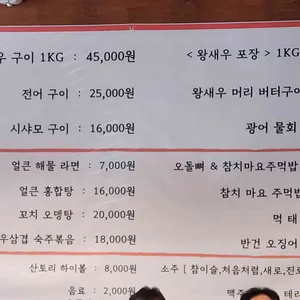 우 구이 1KG : 45,000원
< 왕새우 포장 > 1KG
전어 구이 : 25,000원
왕새우 머리 버터구이
시샤모 구이 : 16,000원
광어 물회
얼큰 해물 라면 : 7,000원
오돌뼈 & 참치마요주먹밥
얼큰 홍합탕 : 16,000원
참치 마요 주먹밥
꼬치 오뎅탕 : 20,000원
먹 태
우삼겹 숙주볶음 : 18,000원
반건 오징어
산토리 하이볼 : 8,000원
소주 [ 참이슬,처음처럼,새로,진로
음료 : 2,000원
맥주 테라